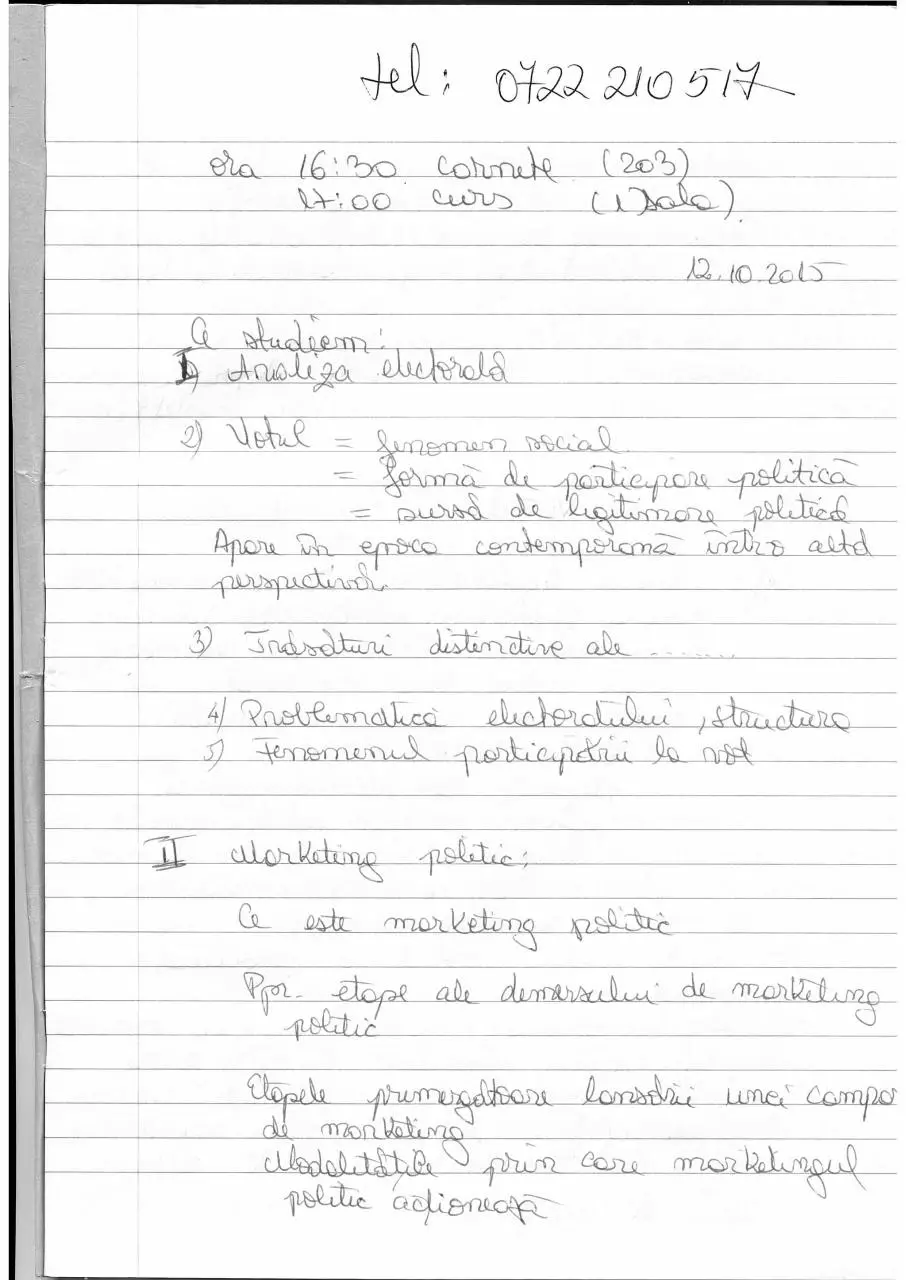 tel: 0722 210 517
ora 16:30 carnete (203)
17:00 curs (1 Sala)
12.10.2015
Ce studiem:
I) Analiza electorală
2) Votul = fenomen social
= formă de participare politică
= sursă de legitimare politică
Apare în epoca contemporană întro altă
perspectivă.
3) Trăsături distinctive ale ........
4) Problematica electoratului, structura
5) Fenomenul participării la vot
II Marketing politic:
Ce este marketing politic
Ppr. etape ale demersului de marketing
politic
Etapele premergătoare lansării unei campa
de marketing
Modalitățile prin care marketingul
politic acționează